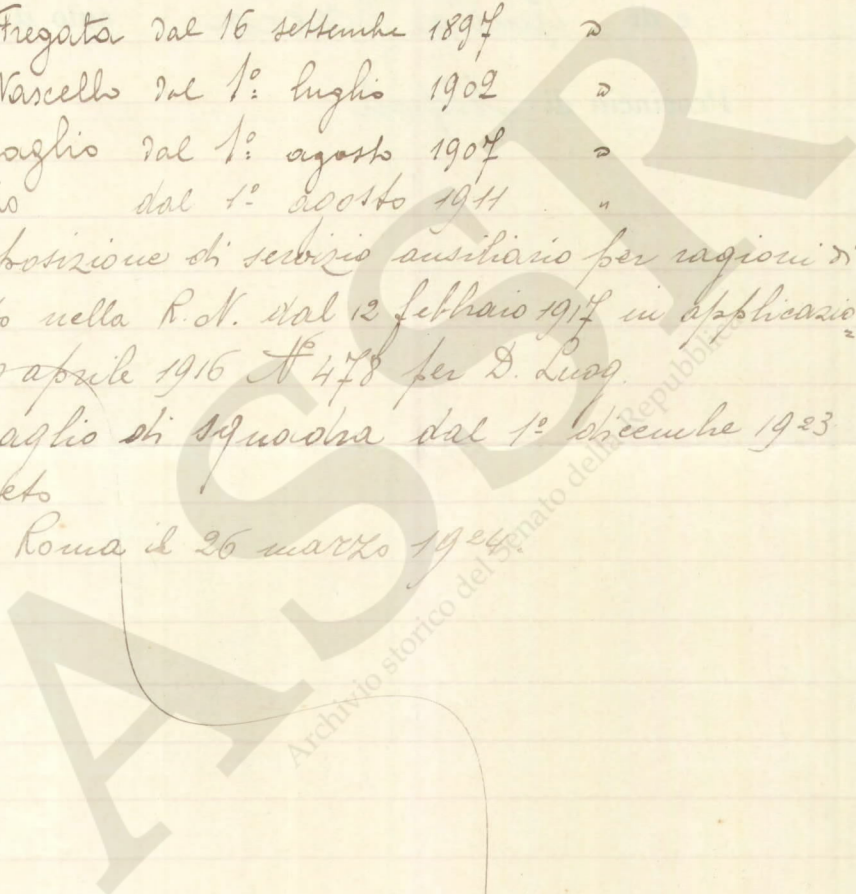 Fregata dal 16 settembre 1897 "
Vascello dal 1º luglio 1902 "
aglio dal 1º agosto 1907 "
io dal 1º agosto 1911 "
posizione di servizio ausiliario per ragioni di
o nella R. N. dal 12 febbraio 1917 in applicazio
aprile 1916 Nº 478 per D. Luog.
aglio di squadra dal 1º dicembre 1923
eto
Roma il 26 marzo 1924.
ASSR
Archivio storico del Senato della Repubblica